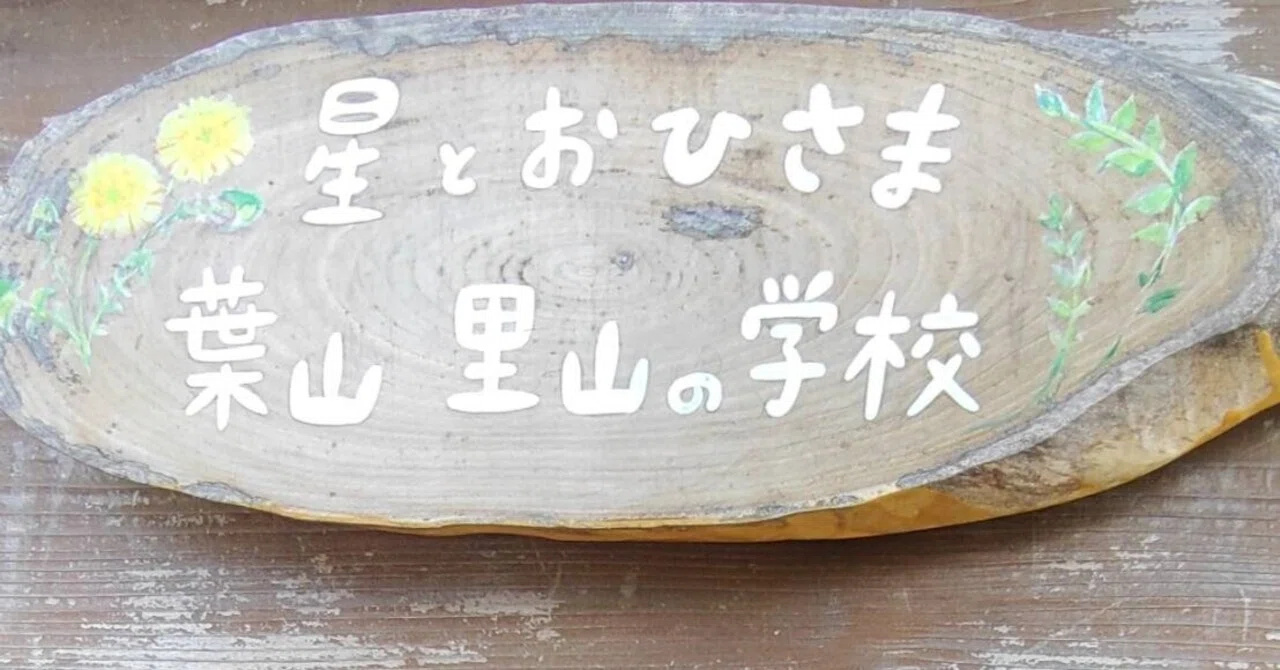 星とおひさま
葉山 里山の学校